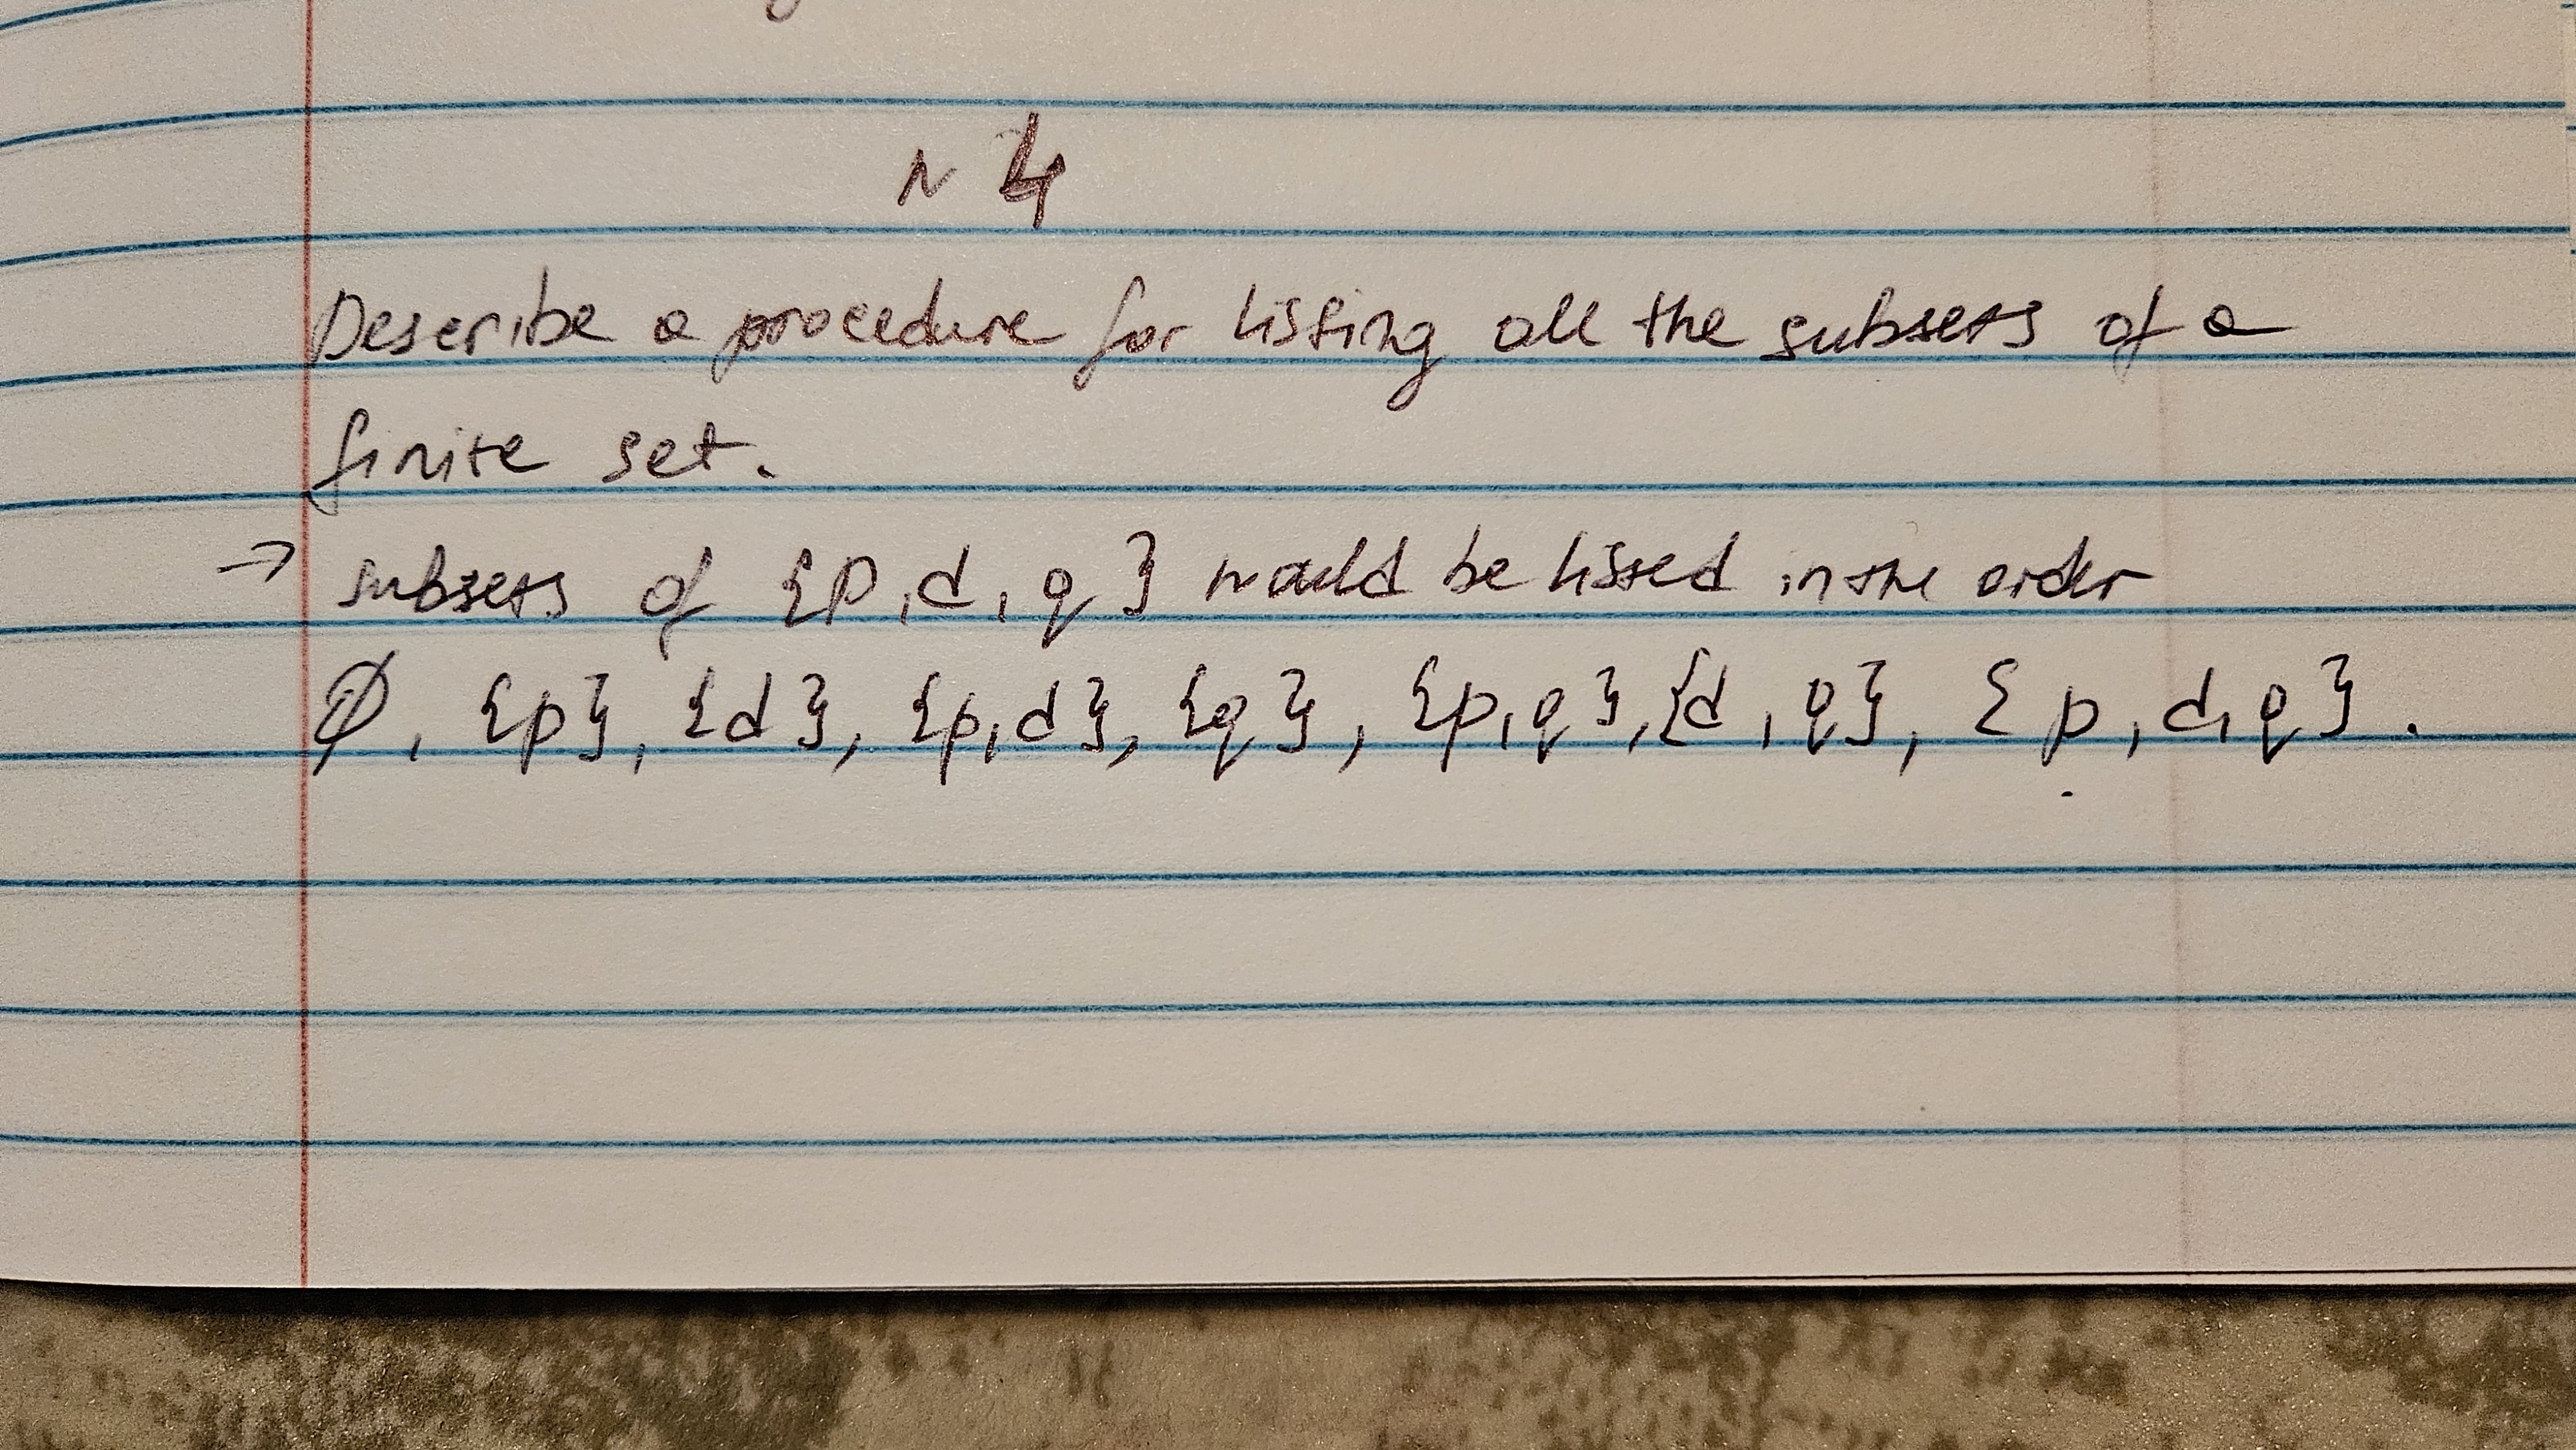 N 4
Describe a procedure for listing all the subsets of a
finite set.
→ subsets of {p, d, q} would be listed in the order
∅, {p}, {d}, {p, d}, {q}, {p, q}, {d, q}, {p, d, q}.